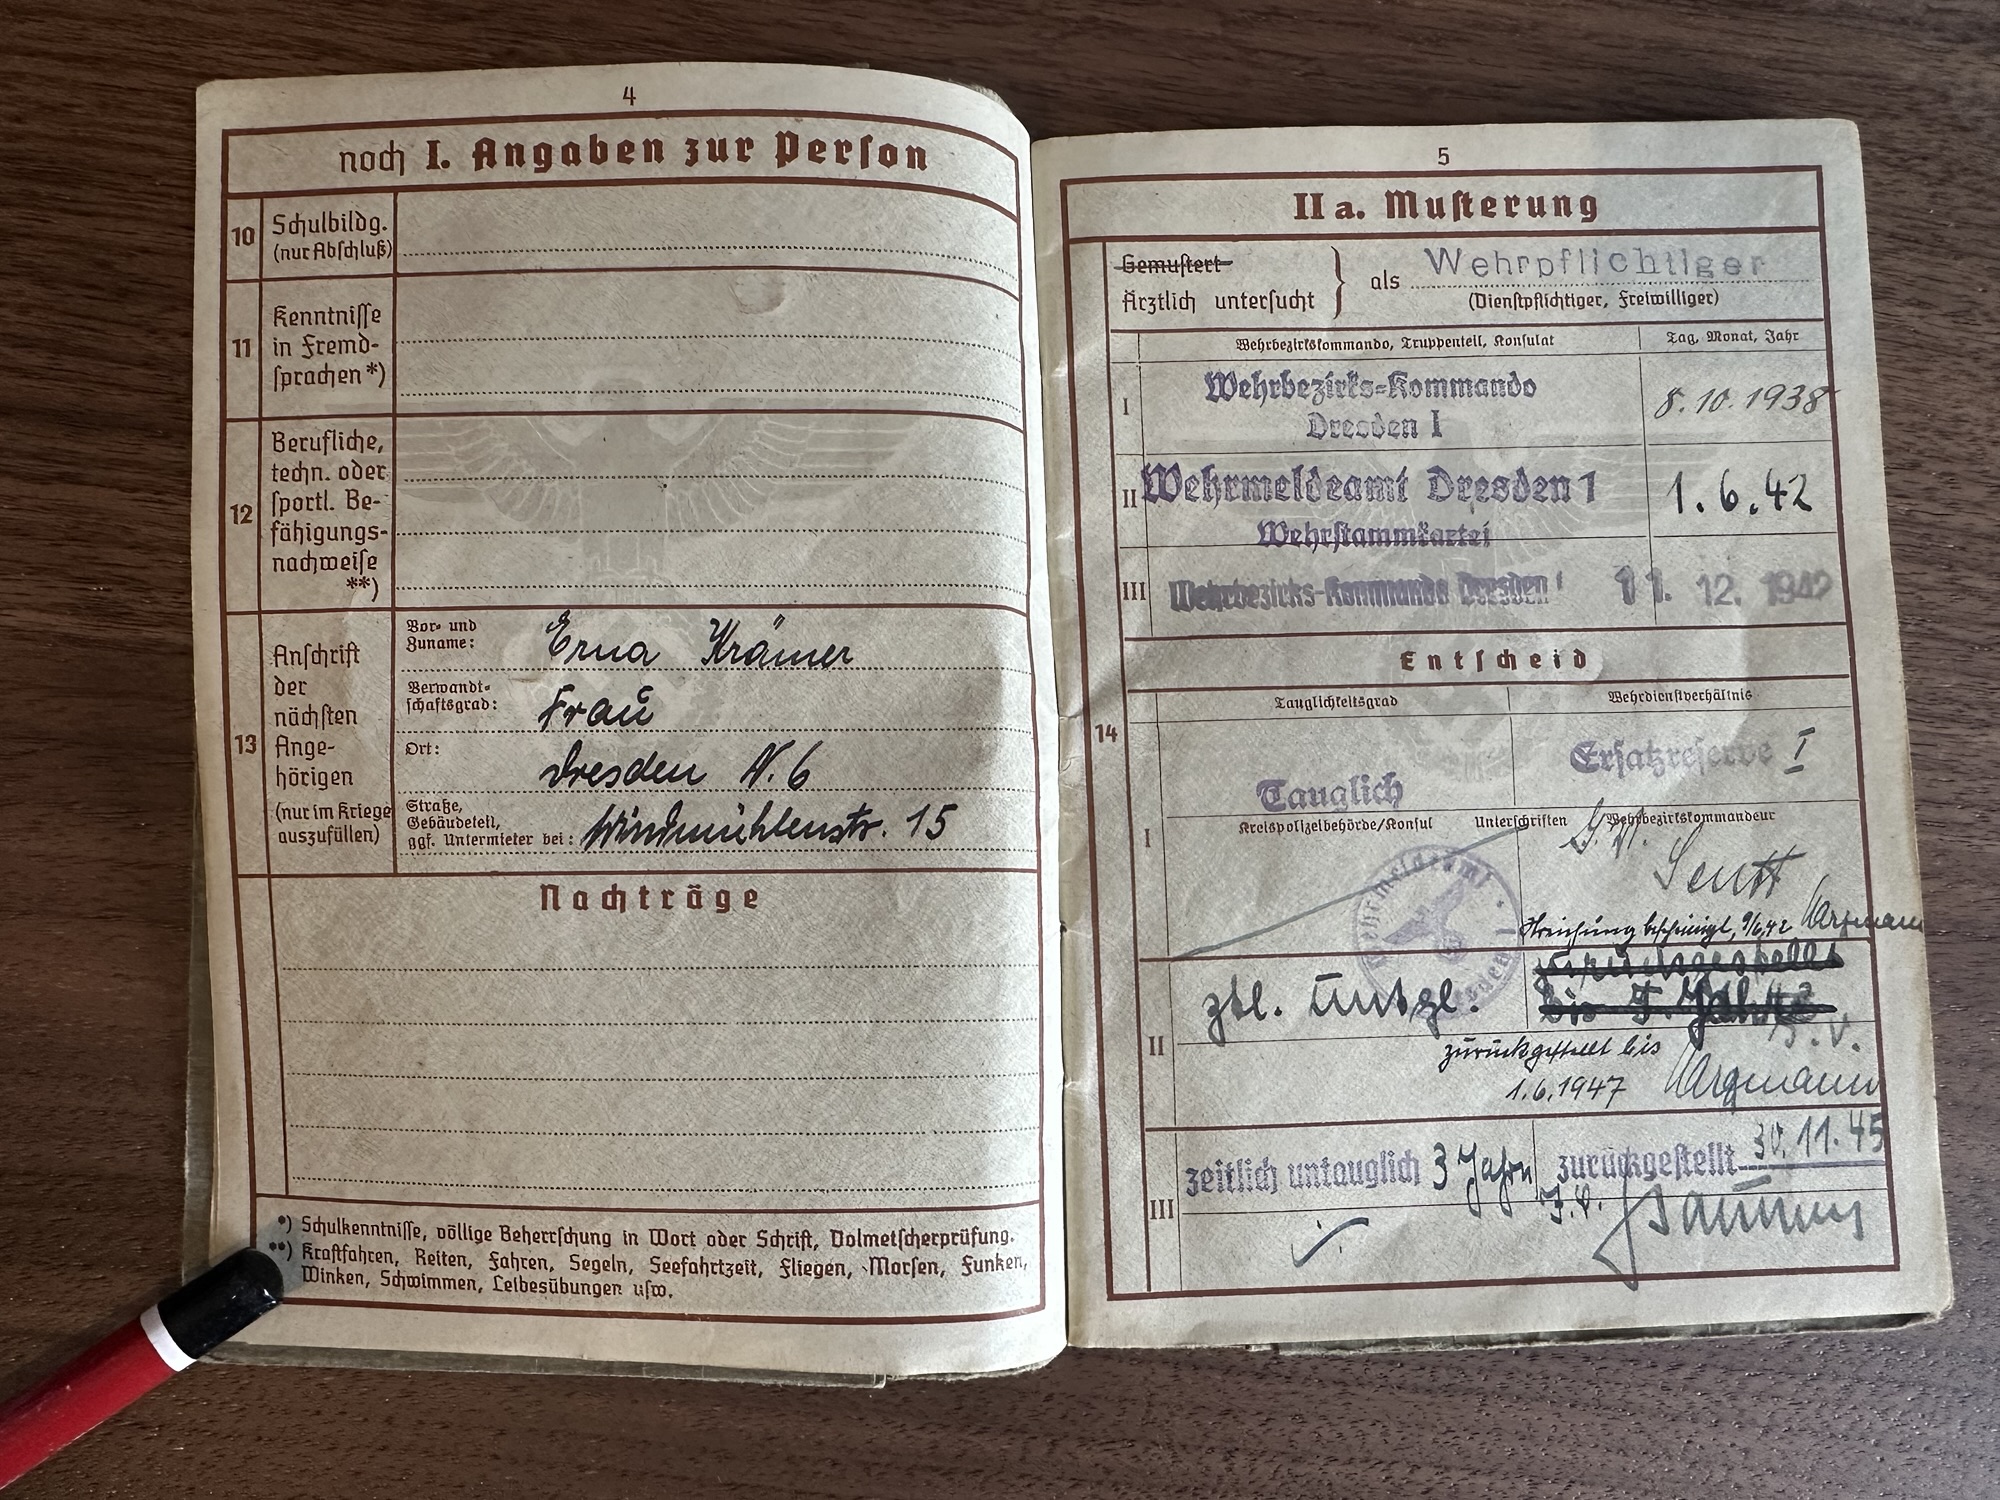 4
noch I. Angaben zur Person
10
Schulbildg.
(nur Abschluß)
11
Kenntnisse
in Fremd-
sprachen *)
12
Berufliche,
techn. oder
sportl. Be-
fähigungs-
nachweise
**)
13
Anschrift
der
nächsten
Ange-
hörigen
(nur im Kriege
auszufüllen)
Vor- und
Zuname:
Erna Krämer
Verwandt-
schaftsgrad:
Frau
Ort:
Dresden N. 6
Straße,
Gebäudeteil,
ggf. Untermieter bei: Windmühlenstr. 15
Nachträge
*) Schulkenntnisse, völlige Beherrschung in Wort oder Schrift, Dolmetscherprüfung.
**) Kraftfahren, Reiten, Fahren, Segeln, Seefahrtzeit, Fliegen, Morsen, Funken,
Winken, Schwimmen, Leibesübungen usw.
5
IIa. Musterung
Gemustert
Ärztlich untersucht
als Wehrpflichtiger
(Dienstpflichtiger, Freiwilliger)
Wehrbezirkskommando, Truppenteil, Konsulat
Tag, Monat, Jahr
I
Wehrbezirks-Kommando
Dresden I
8.10.1938
II
Wehrmeldeamt Dresden 1
Wehrstammkartei
1.6.42
III
Wehrbezirks-Kommando Dresden I
11. 12. 1942
Entscheid
14
Tauglichkeitsgrad
Wehrdienstverhältnis
I
Tauglich
Ersatzreserve I
Kreispolizeibehörde/Konsul Unterschriften Wehrbezirkskommandeur
Wehrmeldeamt
Dresden
Streichung bescheinigt, 9/6.42 Wargmann
II
ztl. untgl.
zurückgestellt
bis
zurückgestellt bis
1.6.1947 Wargmann
III
zeitlich untauglich 3 Jahre
zurückgestellt 30.11.45